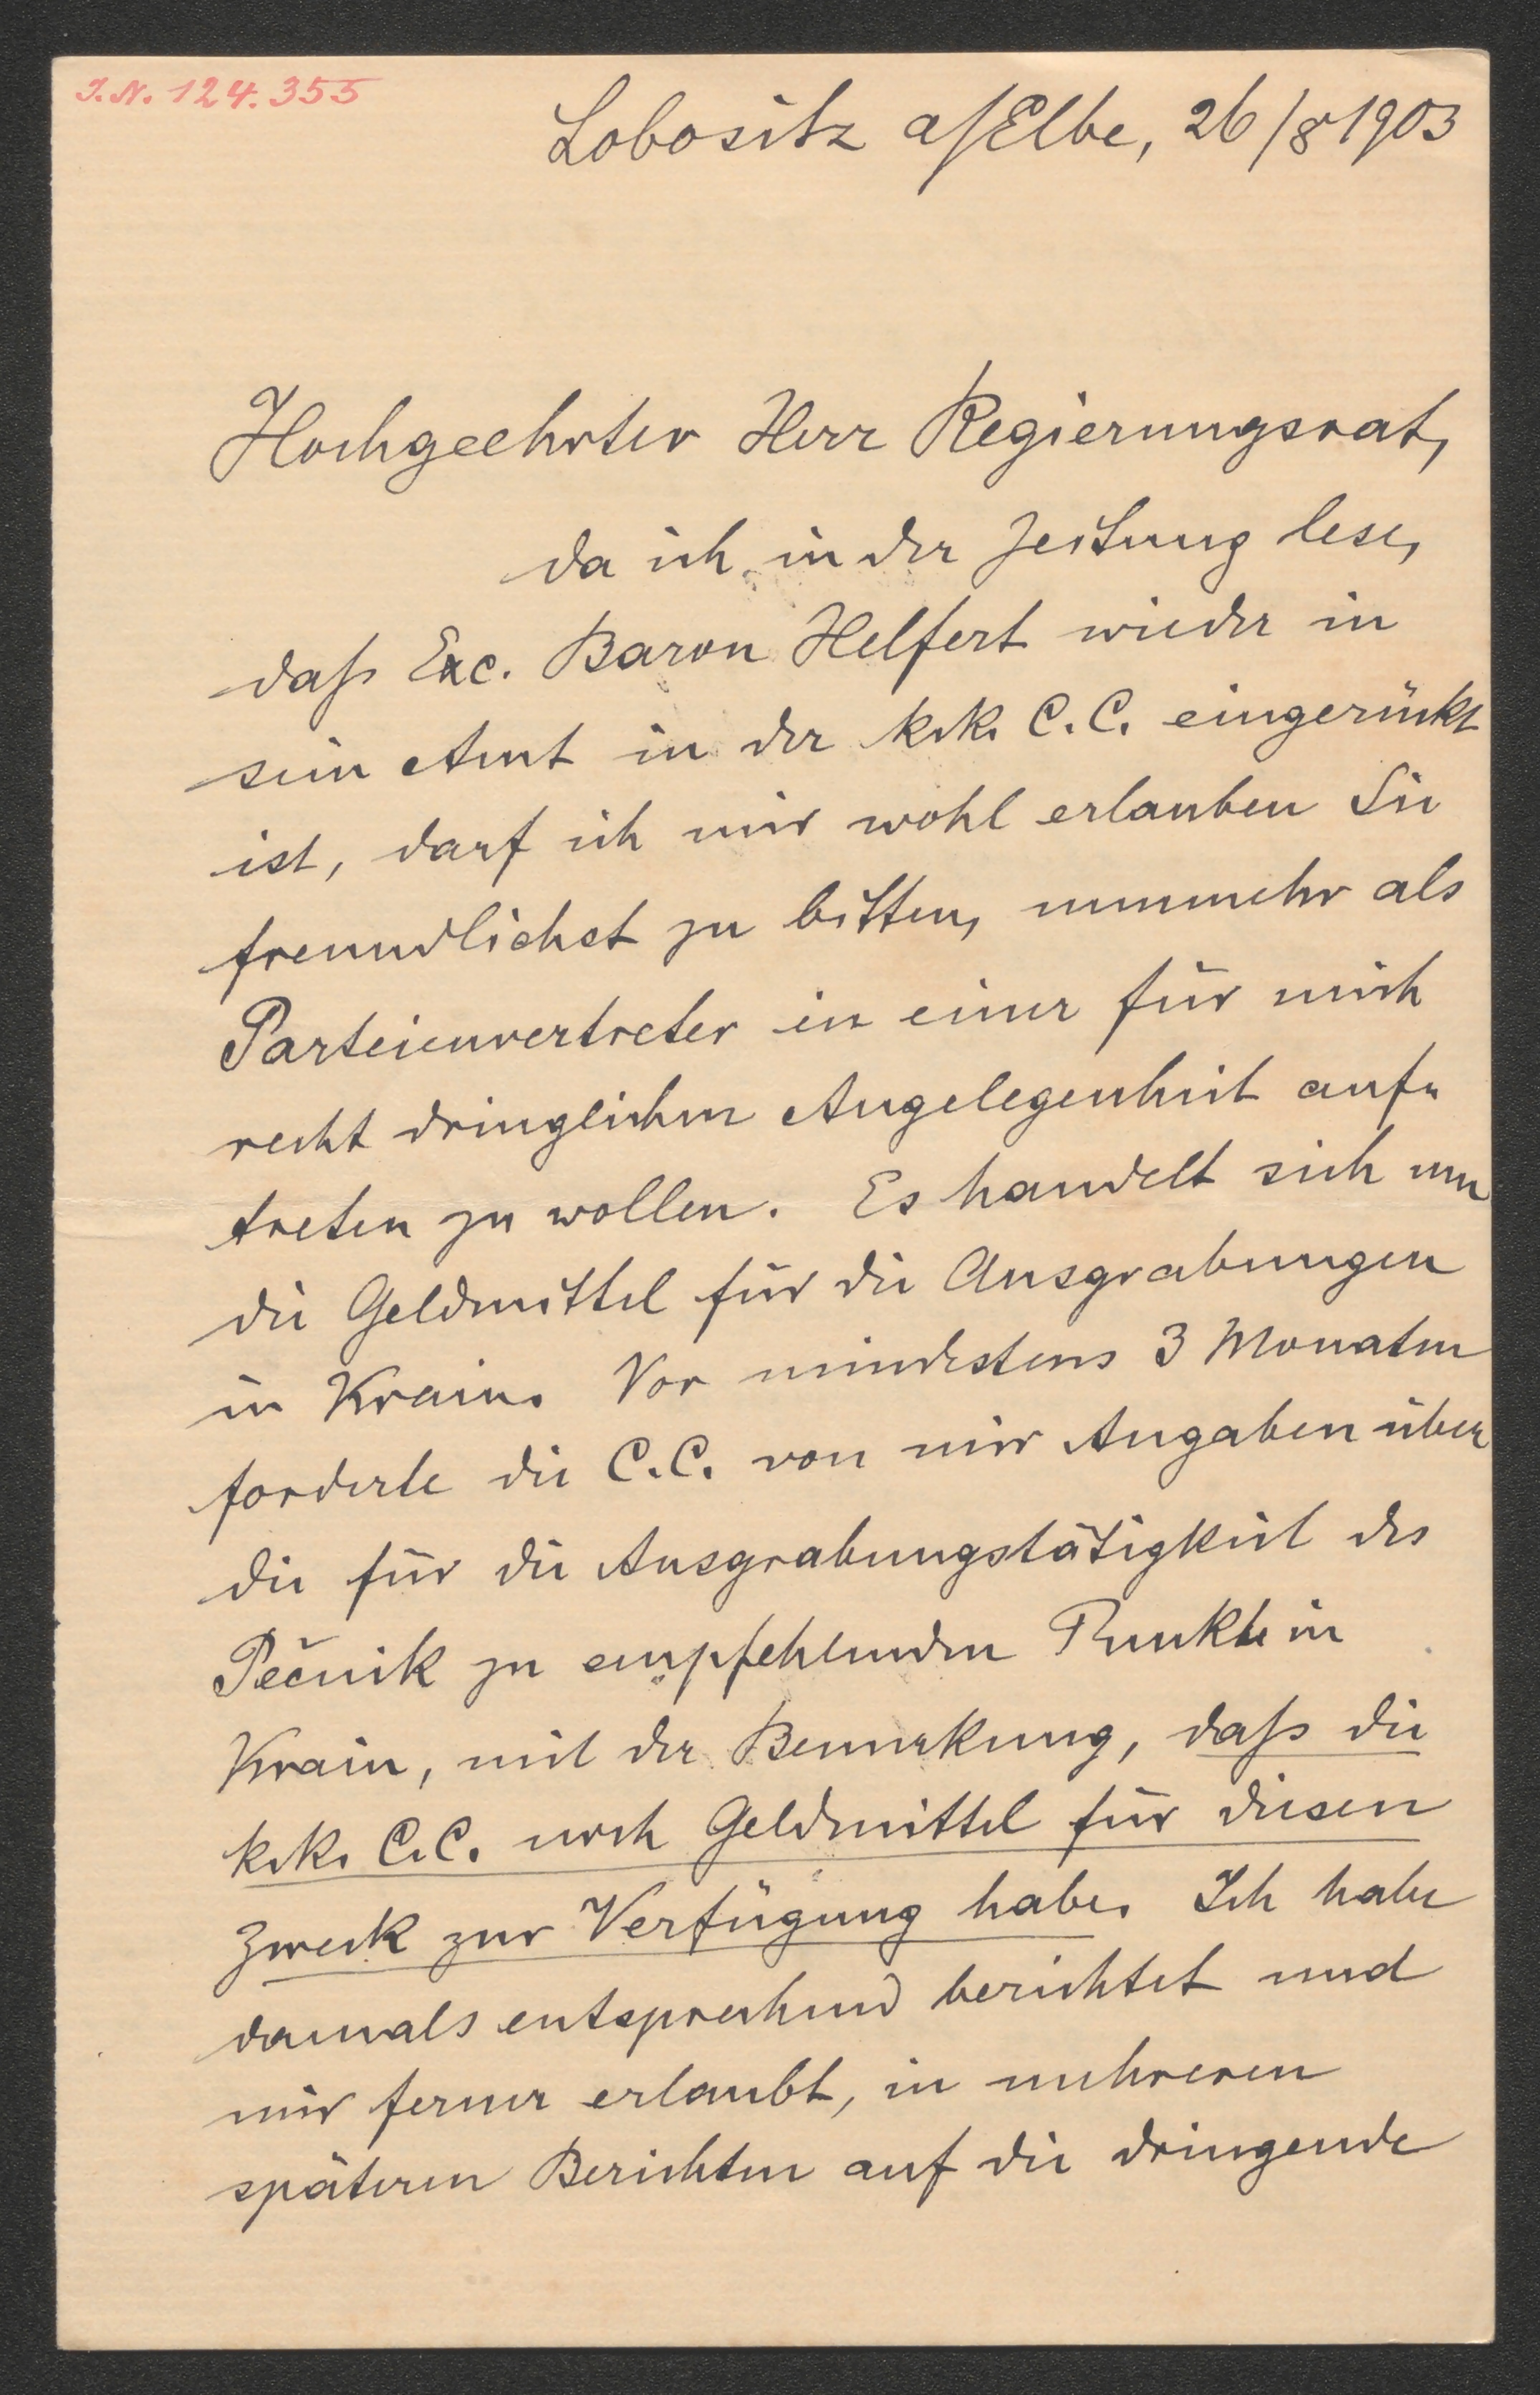 J. N. 124.355
Lobositz a/Elbe, 26/8 1903
Hochgeehrter Herr Regierungsrat,
da ich in der Zeitung lese,
daß Exc. Baron Helfert wieder in
sein Amt in der k.k. C.C. eingerückt
ist, darf ich mir wohl erlauben Sie
freundlichst zu bitten, nunmehr als
Parteienvertreter in einer für mich
recht dringlichen Angelegenheit auf-
treten zu wollen. Es handelt sich um
die Geldmittel für die Ausgrabungen
in Krain. Vor mindestens 3 Monaten
forderte die C.C. von mir Angaben über
die für die Ausgrabungstätigkeit des
Pečnik zu empfehlenden Punkte in
Krain, mit der Bemerkung, daß die
k.k. C.C. noch Geldmittel für diesen
Zweck zur Verfügung habe. Ich habe
damals entsprechend berichtet und
mir ferner erlaubt, in mehreren
späteren Berichten auf die dringende